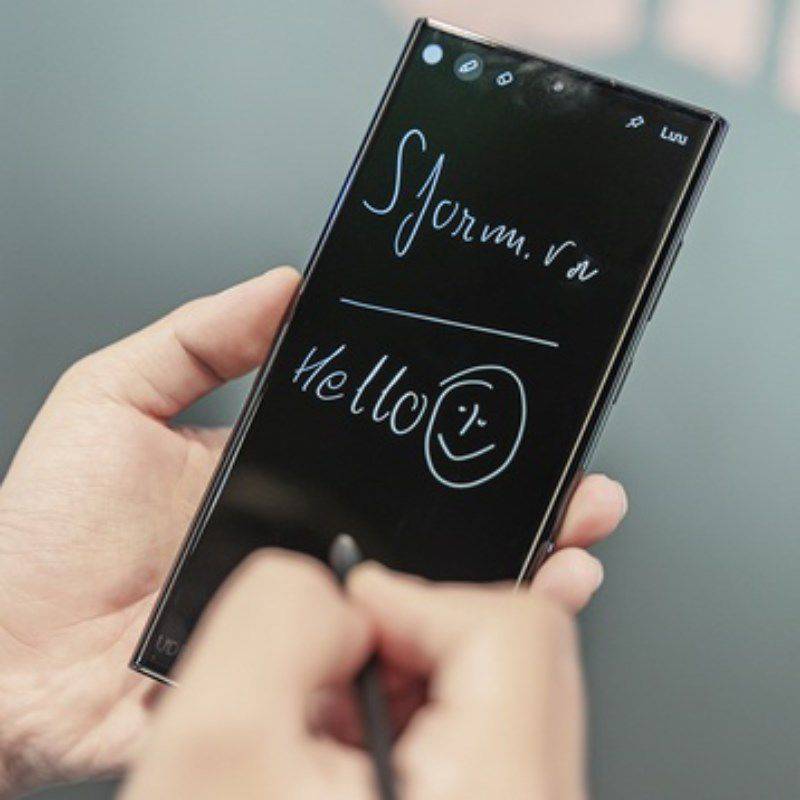 Lưu
Sforum.vn
Hello